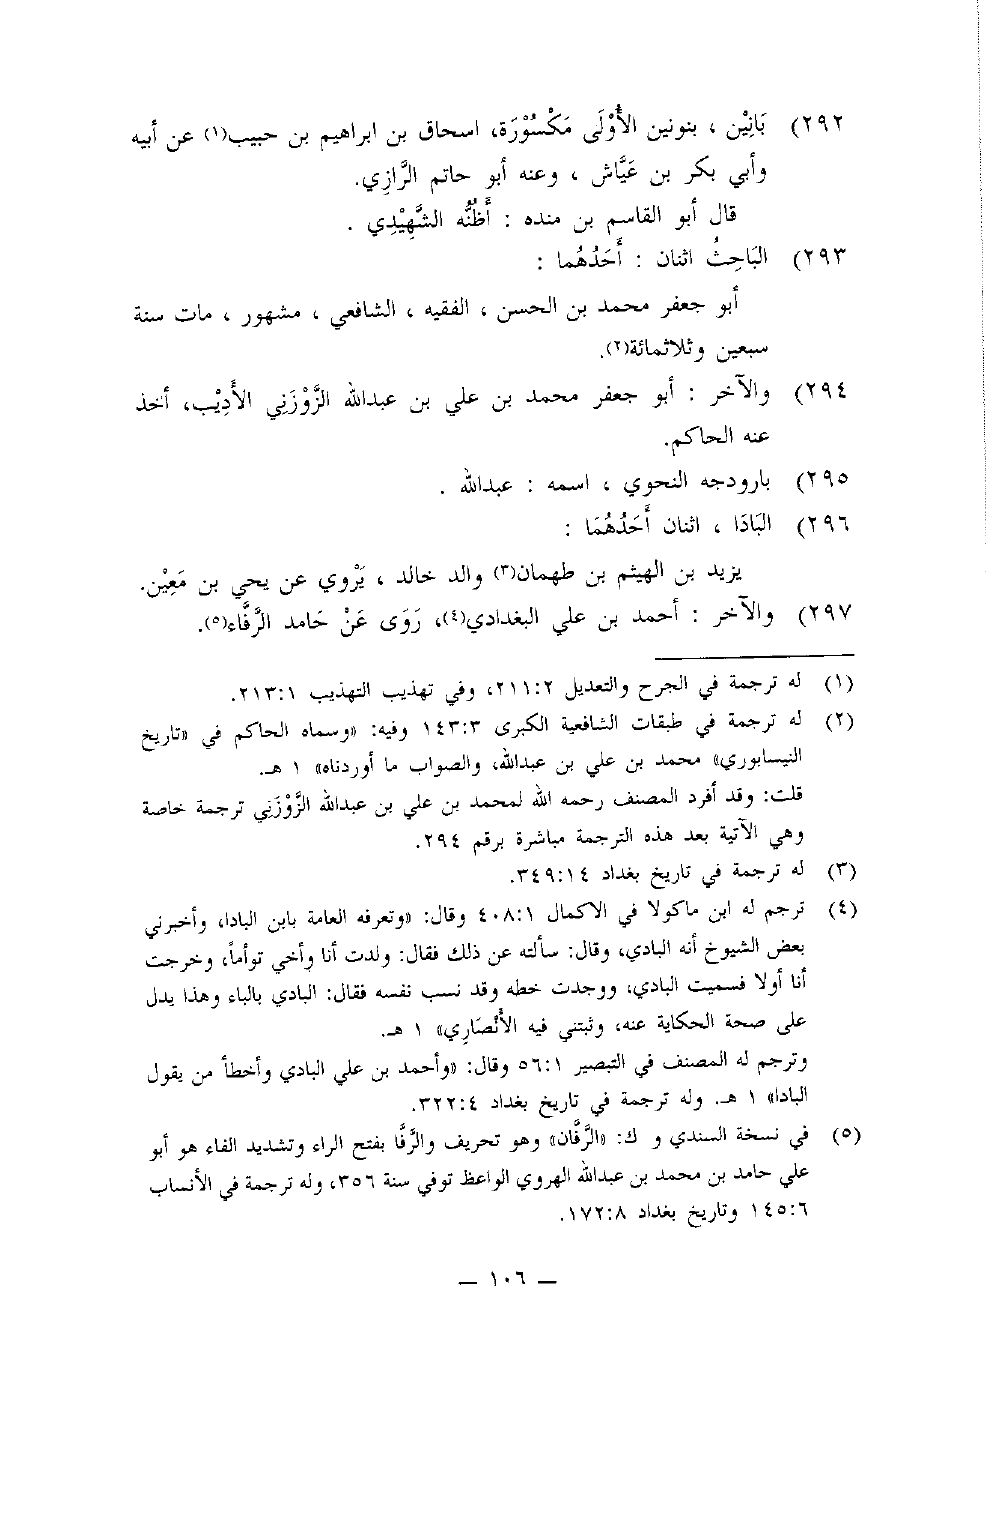 ٢٩٢) بَانِيْن ، بنونين الأُوْلَى مَكْسُوْرَة، اسحاق بن ابراهيم بن حبيب(١) عن أبيه
وأبي بكر بن عَيَّاش ، وعنه أبو حاتم الرَّازِي.
قال أبو القاسم بن منده : أَظُنُّه الشَّهِيْدِي .
٢٩٣) البَاحِثُ اثنان : أَحَدُهُما :
أبو جعفر محمد بن الحسن ، الفقيه ، الشافعي ، مشهور ، مات سنة
سبعين وثلاثمائة(٢).
٢٩٤) والآخر : أبو جعفر محمد بن علي بن عبدالله الزَّوْزَنِي الأَدِيْب، أخذ
عنه الحاكم.
٢٩٥) بارودجه النحوي ، اسمه : عبدالله .
٢٩٦) البَادَا ، اثنان أَحَدُهُمَا :
يزيد بن الهيثم بن طهمان(٣) والد خالد ، يَرْوي عن يحي بن مَعِيْن.
٢٩٧) والآخر : أحمد بن علي البغدادي(٤)، رَوَى عَنْ حَامد الرَّفَّاء(٥).
(١) له ترجمة في الجرح والتعديل ٢:٢١١، وفي تهذيب التهذيب ١:٢١٣.
(٢) له ترجمة في طبقات الشافعية الكبرى ٣:١٤٣ وفيه: «وسماه الحاكم في «تاريخ
النيسابوري» محمد بن علي بن عبدالله، والصواب ما أوردناه» ١ هـ.
قلت: وقد أفرد المصنف رحمه الله لمحمد بن علي بن عبدالله الزَّوْزَنِي ترجمة خاصة
وهي الآتية بعد هذه الترجمة مباشرة برقم ٢٩٤.
(٣) له ترجمة في تاريخ بغداد ١٤:٣٤٩.
(٤) ترجم له ابن ماكولا في الاكمال ١:٤٠٨ وقال: «وتعرفه العامة بابن البادا، وأخبرني
بعض الشيوخ أنه البادي، وقال: سألته عن ذلك فقال: ولدت أنا وأخي توأماً، وخرجت
أنا أولا فسميت البادي، ووجدت خطه وقد نسب نفسه فقال: البادي بالباء وهذا يدل
على صحة الحكاية عنه، وثبتني فيه الأَنْصَارِي» ١ هـ.
وترجم له المصنف في التبصير ١:٥٦ وقال: «وأحمد بن علي البادي وأخطأ من يقول
البادا» ١ هـ. وله ترجمة في تاريخ بغداد ٤:٣٢٢.
(٥) في نسخة السندي و ك: «الرَّقَّان» وهو تحريف والرَّفَّا بفتح الراء وتشديد الفاء هو أبو
علي حامد بن محمد بن عبدالله الهروي الواعظ توفي سنة ٣٥٦، وله ترجمة في الأنساب
٦:١٤٥ وتاريخ بغداد ٨:١٧٢.
— ١٠٦ —